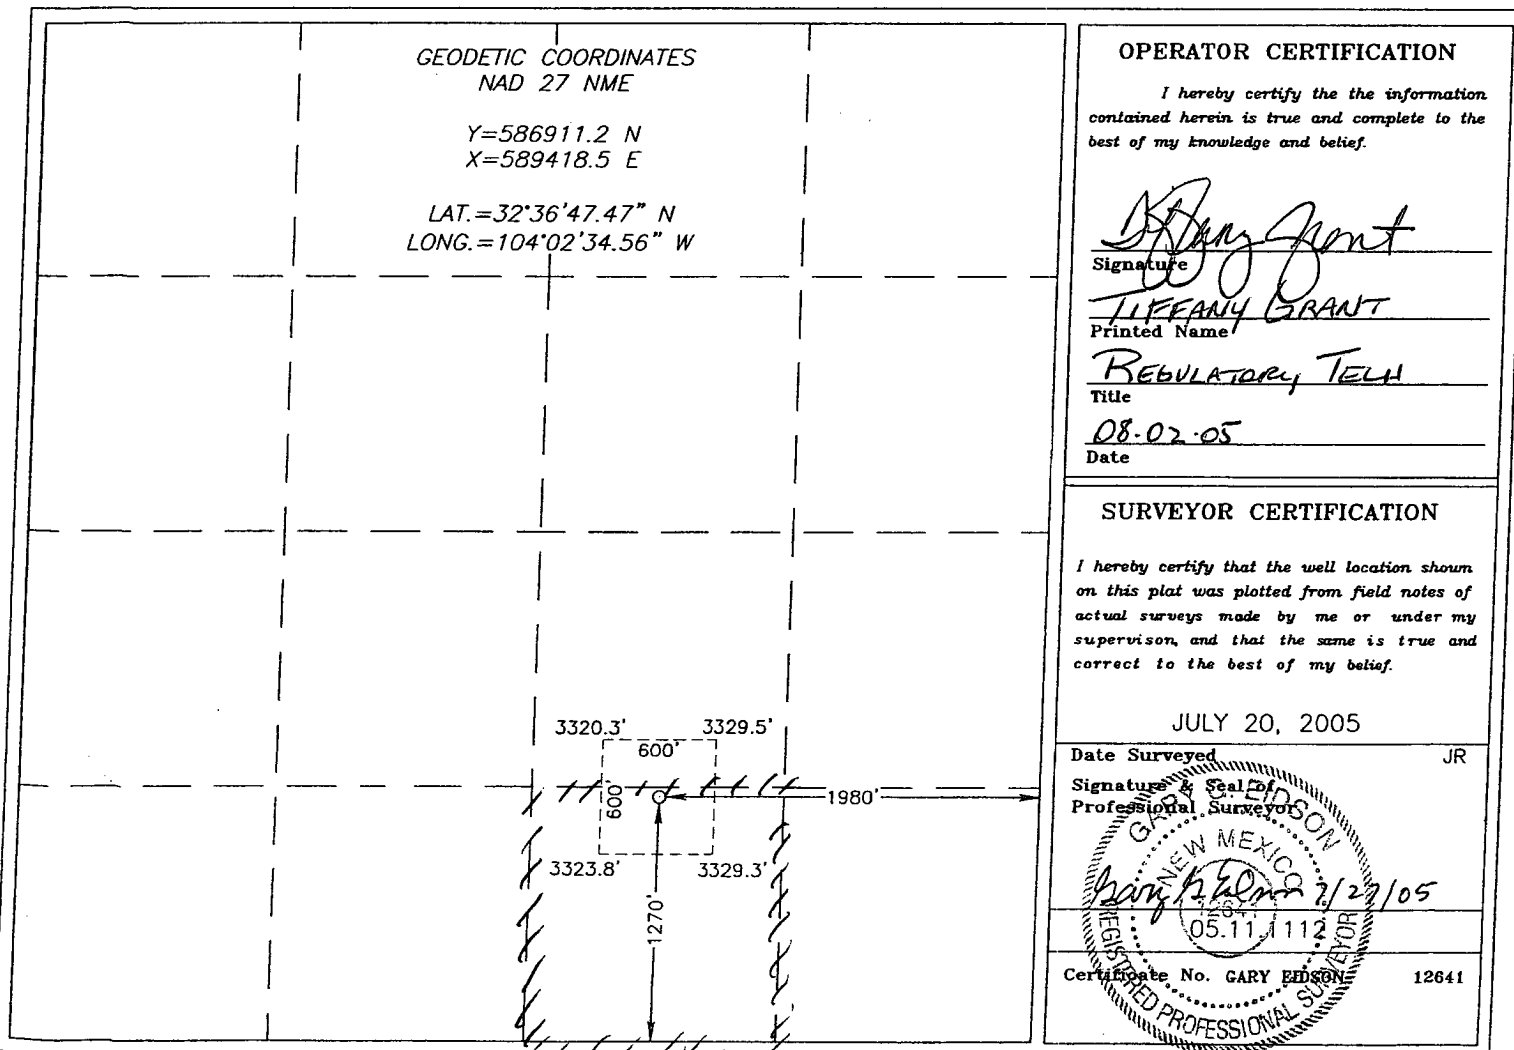 GEODETIC COORDINATES
NAD 27 NME
Y=586911.2 N
X=589418.5 E
LAT.=32°36'47.47" N
LONG.=104°02'34.56" W
3320.3'
3329.5'
600'
600'
1980'
3323.8'
3329.3'
1270'
OPERATOR CERTIFICATION
I hereby certify the the information
contained herein is true and complete to the
best of my knowledge and belief.
Tiffany Grant
Signature
TIFFANY GRANT
Printed Name
REGULATORY TECH
Title
08.02.05
Date
SURVEYOR CERTIFICATION
I hereby certify that the well location shown
on this plat was plotted from field notes of
actual surveys made by me or under my
supervison, and that the same is true and
correct to the best of my belief.
JULY 20, 2005
Date Surveyed JR
Signature & Seal of
Professional Surveyor
GARY G. EIDSON
NEW MEXICO
REGISTERED PROFESSIONAL SURVEYOR
Gary G Eidson 7/27/05
05.11.1112
Certificate No. GARY EIDSON 12641